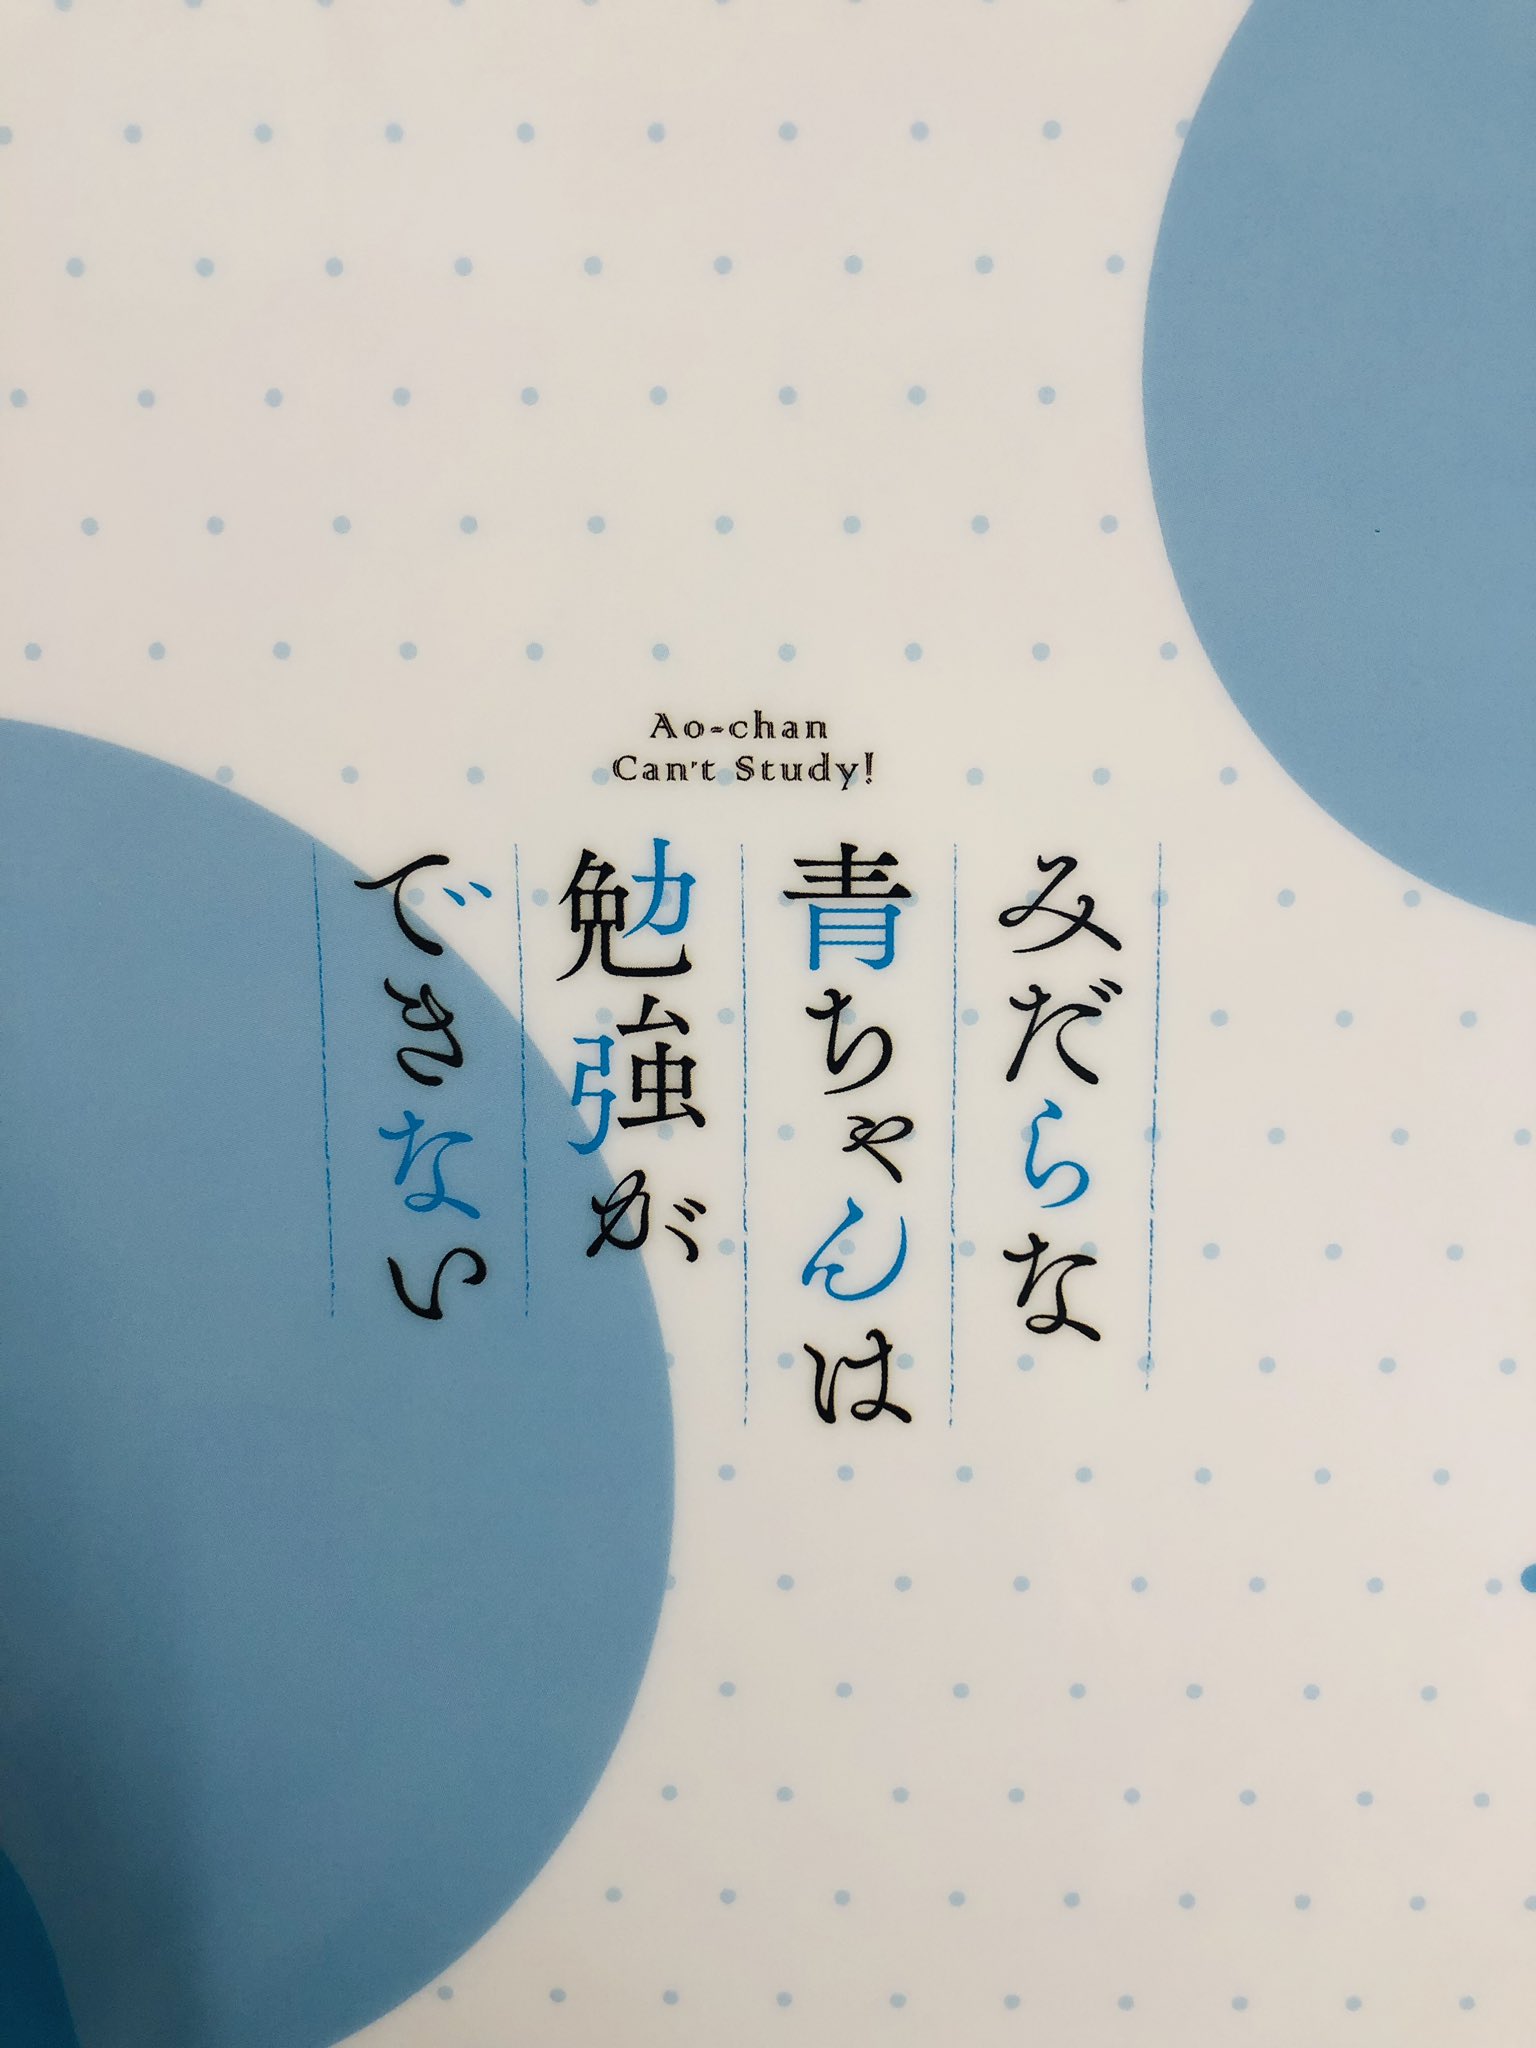 Ao-chan
Can't Study!
みだらな
青ちゃんは
勉強が
できない